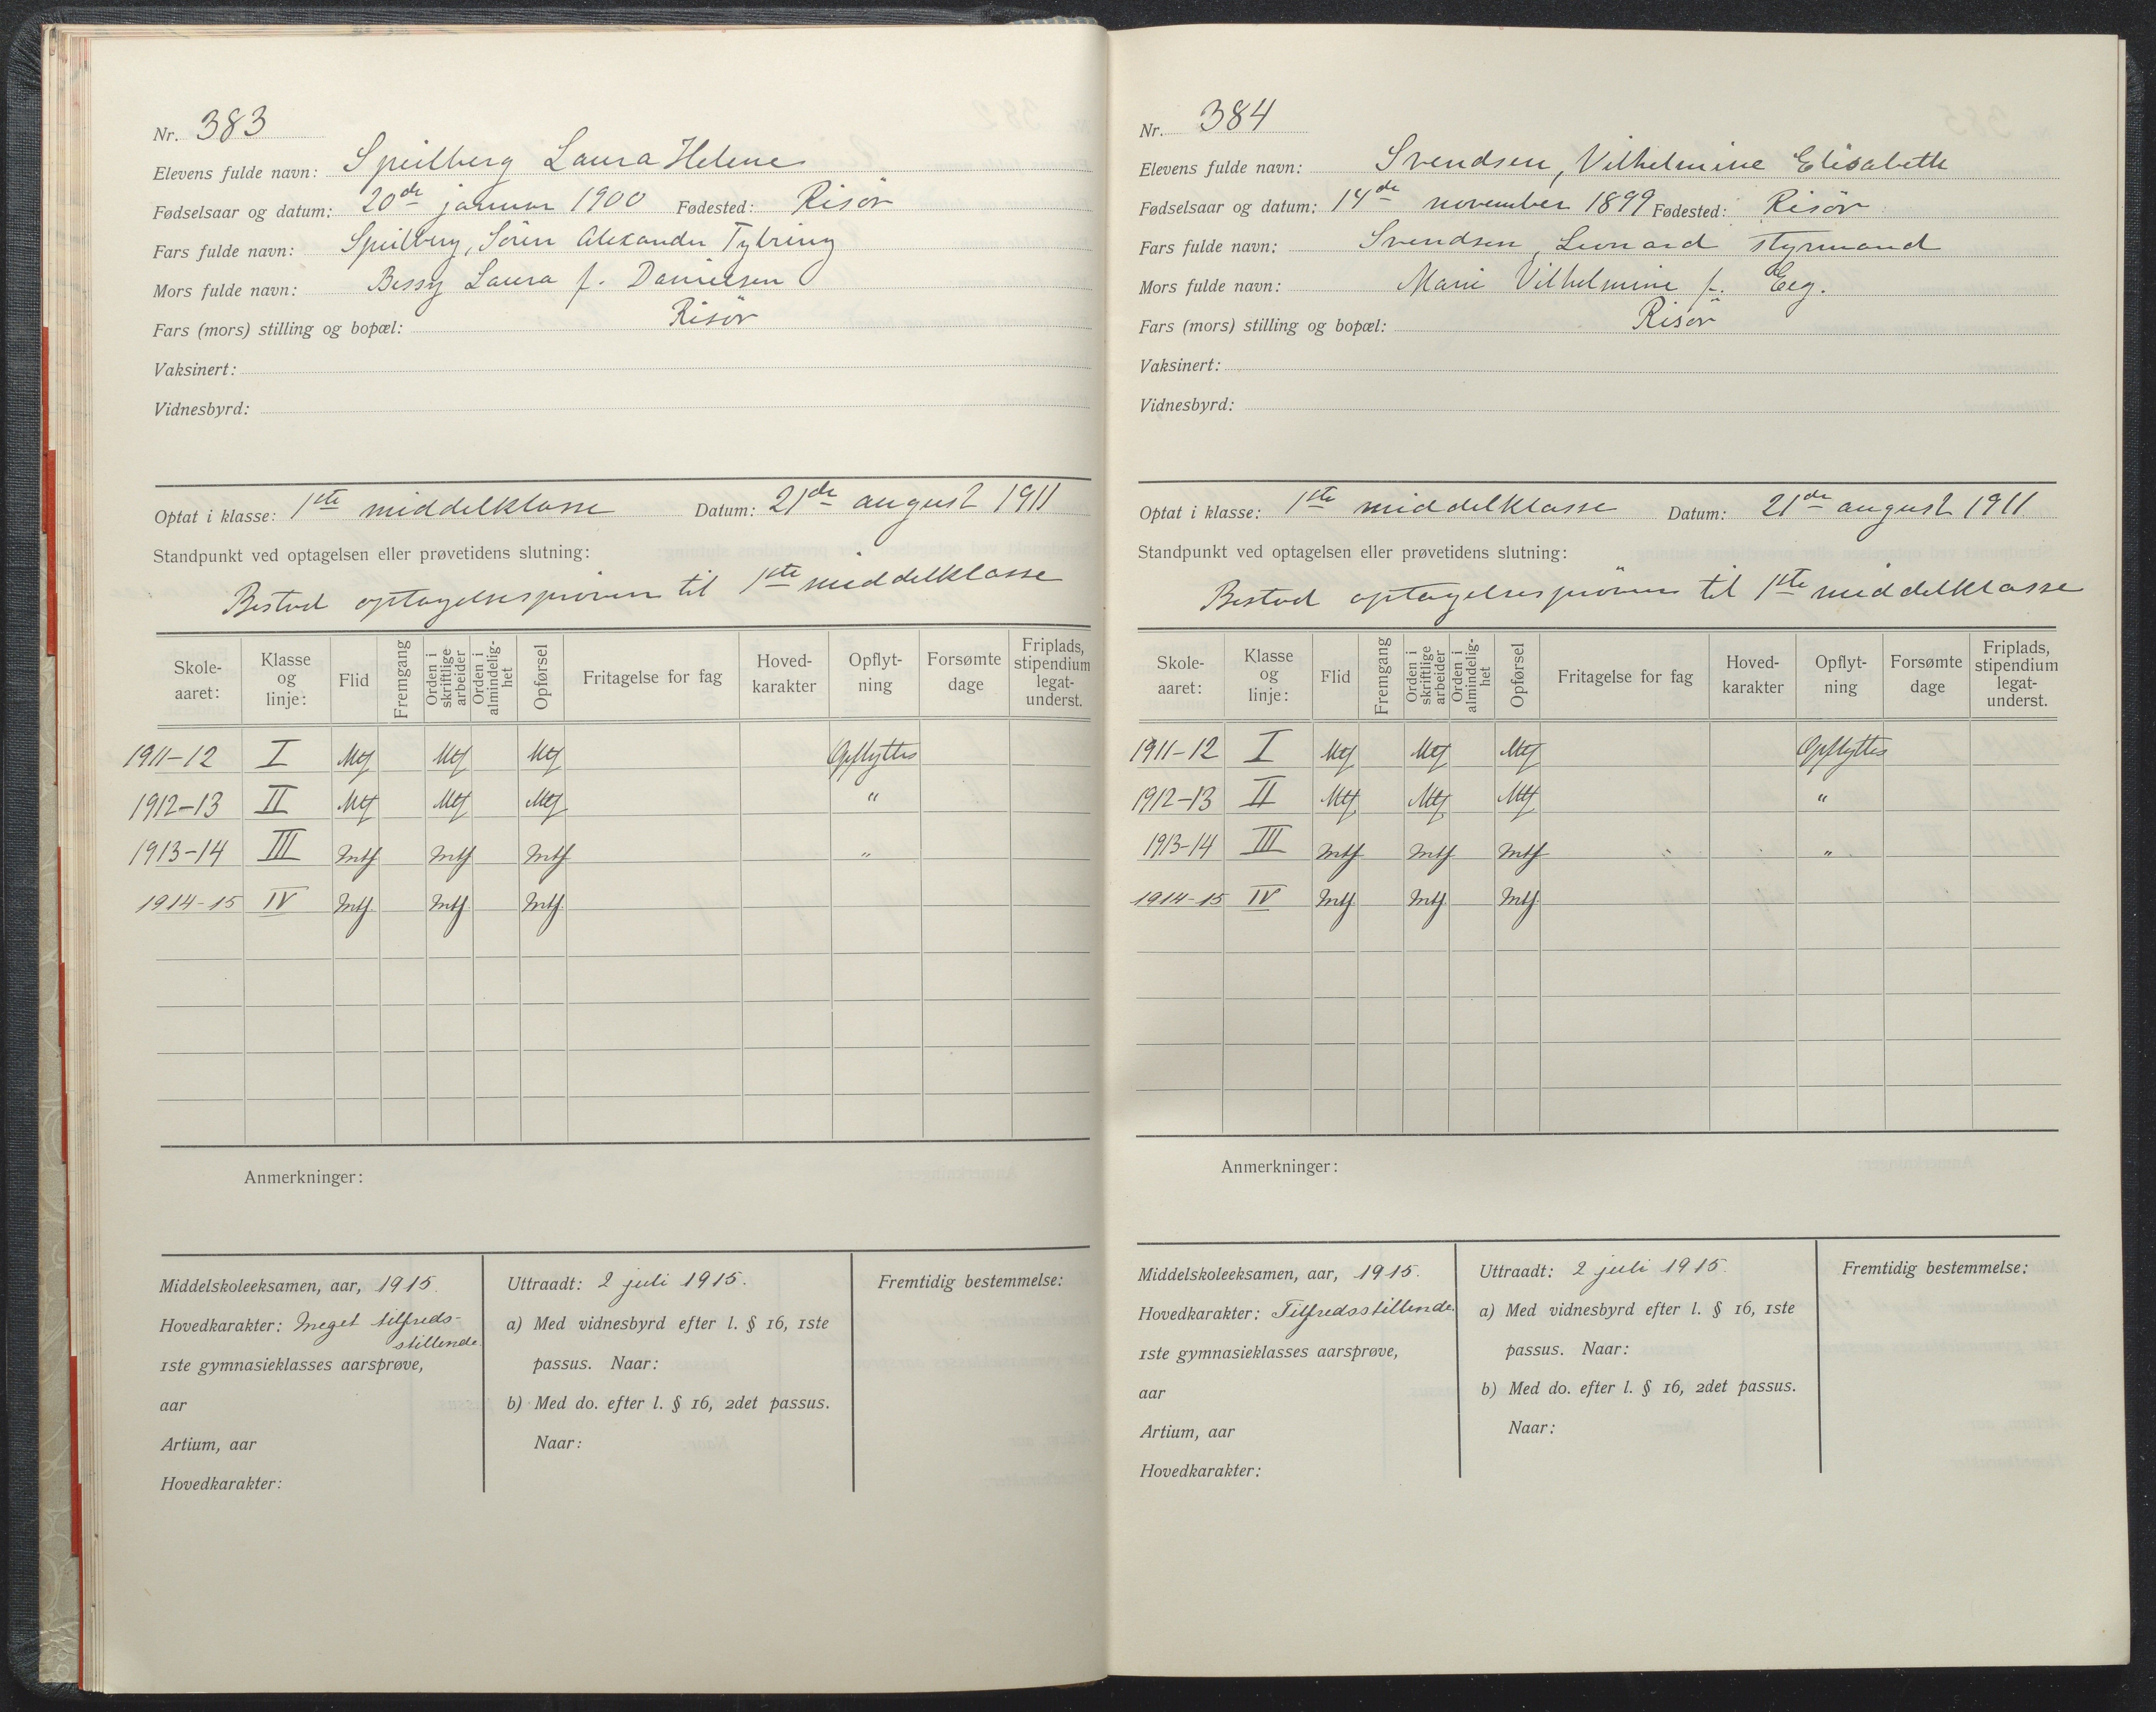 Nr. 383
Elevens fulde navn: Speilberg Laura Helene
Fødselsaar og datum: 20de januar 1900 Fødested: Risör
Fars fulde navn: Speilberg, Sören Alexander Tybring
Mors fulde navn: Bessy Laura f. Danielsen
Fars (mors) stilling og bopæl: Risör
Vaksinert:
Vidnesbyrd:
Optat i klasse: 1ste middelklasse Datum: 21de august 1911
Standpunkt ved optagelsen eller prøvetidens slutning:
Bestod optagelsespröven til 1ste middelklasse
Skole-aaret: Klasse og linje: Flid Fremgang Orden i skriftlige arbeider Orden i almindelig-het Opførsel Fritagelse for fag Hoved-karakter Opflyt-ning Forsømte dage Friplads, stipendium legat-underst.
1911-12 I Mtf Mtf Mtf Opflyttes
1912-13 II Mtf Mtf Mtf "
1913-14 III Mtf Mtf Mtf "
1914-15 IV Mtf Mtf Mtf
Anmerkninger:
Middelskoleeksamen, aar, 1915.
Hovedkarakter: Meget tilfreds-
stillende
1ste gymnasieklasses aarsprøve,
aar
Artium, aar
Hovedkarakter:
Uttraadt: 2 juli 1915.
a) Med vidnesbyrd efter l. § 16, 1ste
passus. Naar:
b) Med do. efter l. § 16, 2det passus.
Naar:
Fremtidig bestemmelse:
Nr. 384
Elevens fulde navn: Svendsen, Vilhelmine Elisabeth
Fødselsaar og datum: 14de november 1899 Fødested: Risör
Fars fulde navn: Svendsen, Leonard styrmand
Mors fulde navn: Marie Vilhelmine f. Eeg.
Fars (mors) stilling og bopæl: Risör
Vaksinert:
Vidnesbyrd:
Optat i klasse: 1ste middelklasse Datum: 21de august 1911
Standpunkt ved optagelsen eller prøvetidens slutning:
Bestod optagelsespröven til 1ste middelklasse
Skole-aaret: Klasse og linje: Flid Fremgang Orden i skriftlige arbeider Orden i almindelig-het Opførsel Fritagelse for fag Hoved-karakter Opflyt-ning Forsømte dage Friplads, stipendium legat-underst.
1911-12 I Mtf Mtf Mtf Opflyttes
1912-13 II Mtf Mtf Mtf "
1913-14 III Mtf Mtf Mtf "
1914-15 IV Mtf Mtf Mtf
Anmerkninger:
Middelskoleeksamen, aar, 1915.
Hovedkarakter: Tilfredsstillende.
1ste gymnasieklasses aarsprøve,
aar
Artium, aar
Hovedkarakter:
Uttraadt: 2 juli 1915.
a) Med vidnesbyrd efter l. § 16, 1ste
passus. Naar:
b) Med do. efter l. § 16, 2det passus.
Naar:
Fremtidig bestemmelse: